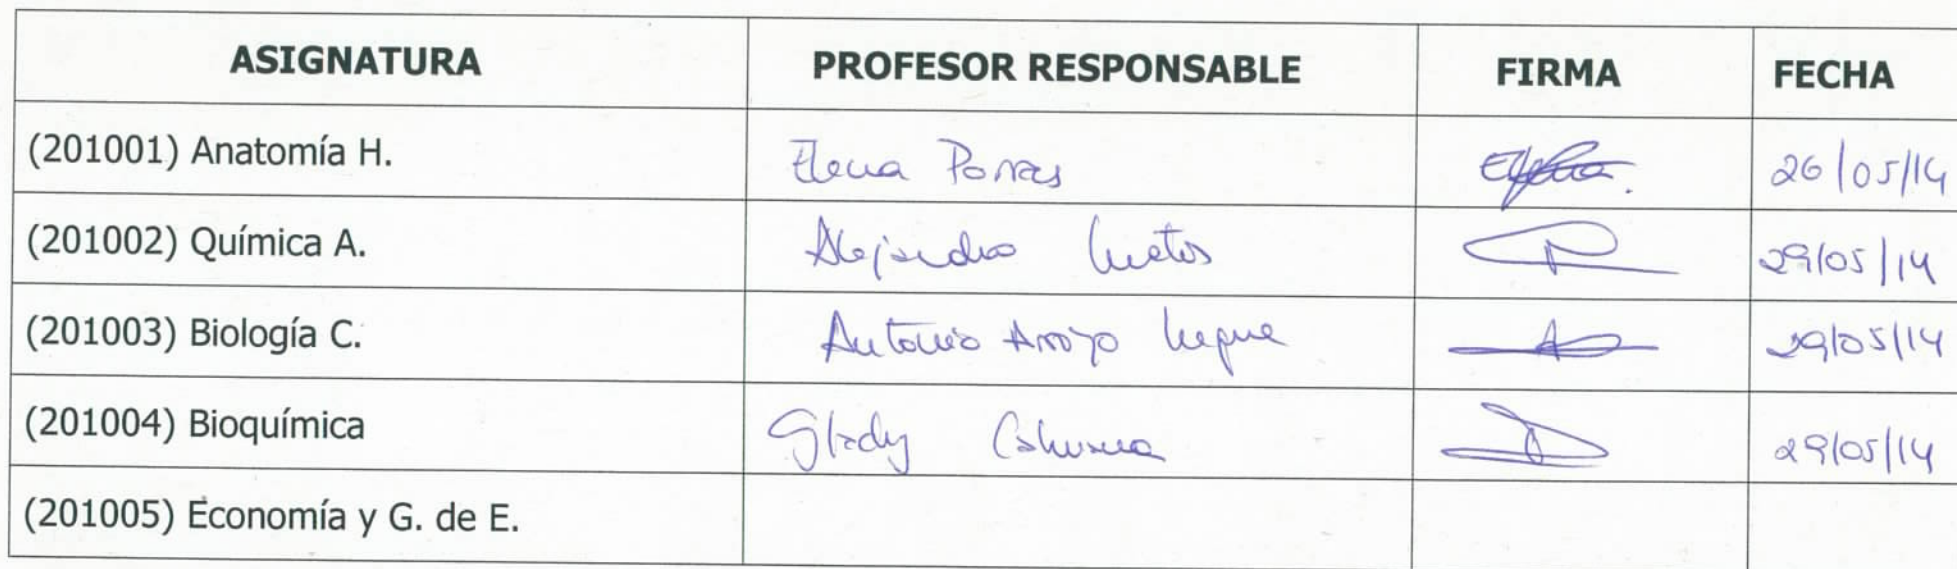 ASIGNATURA PROFESOR RESPONSABLE FIRMA FECHA
(201001) Anatomía H. Elena Porras 26/05/14
(201002) Química A. Alejandro 29/05/14
(201003) Biología C. Antonio Arroyo 29/05/14
(201004) Bioquímica 29/05/14
(201005) Economía y G. de E.